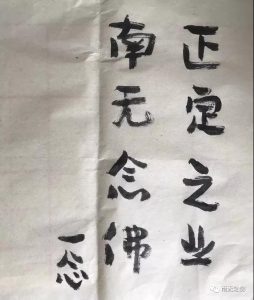 正定之业
南无念佛
一念